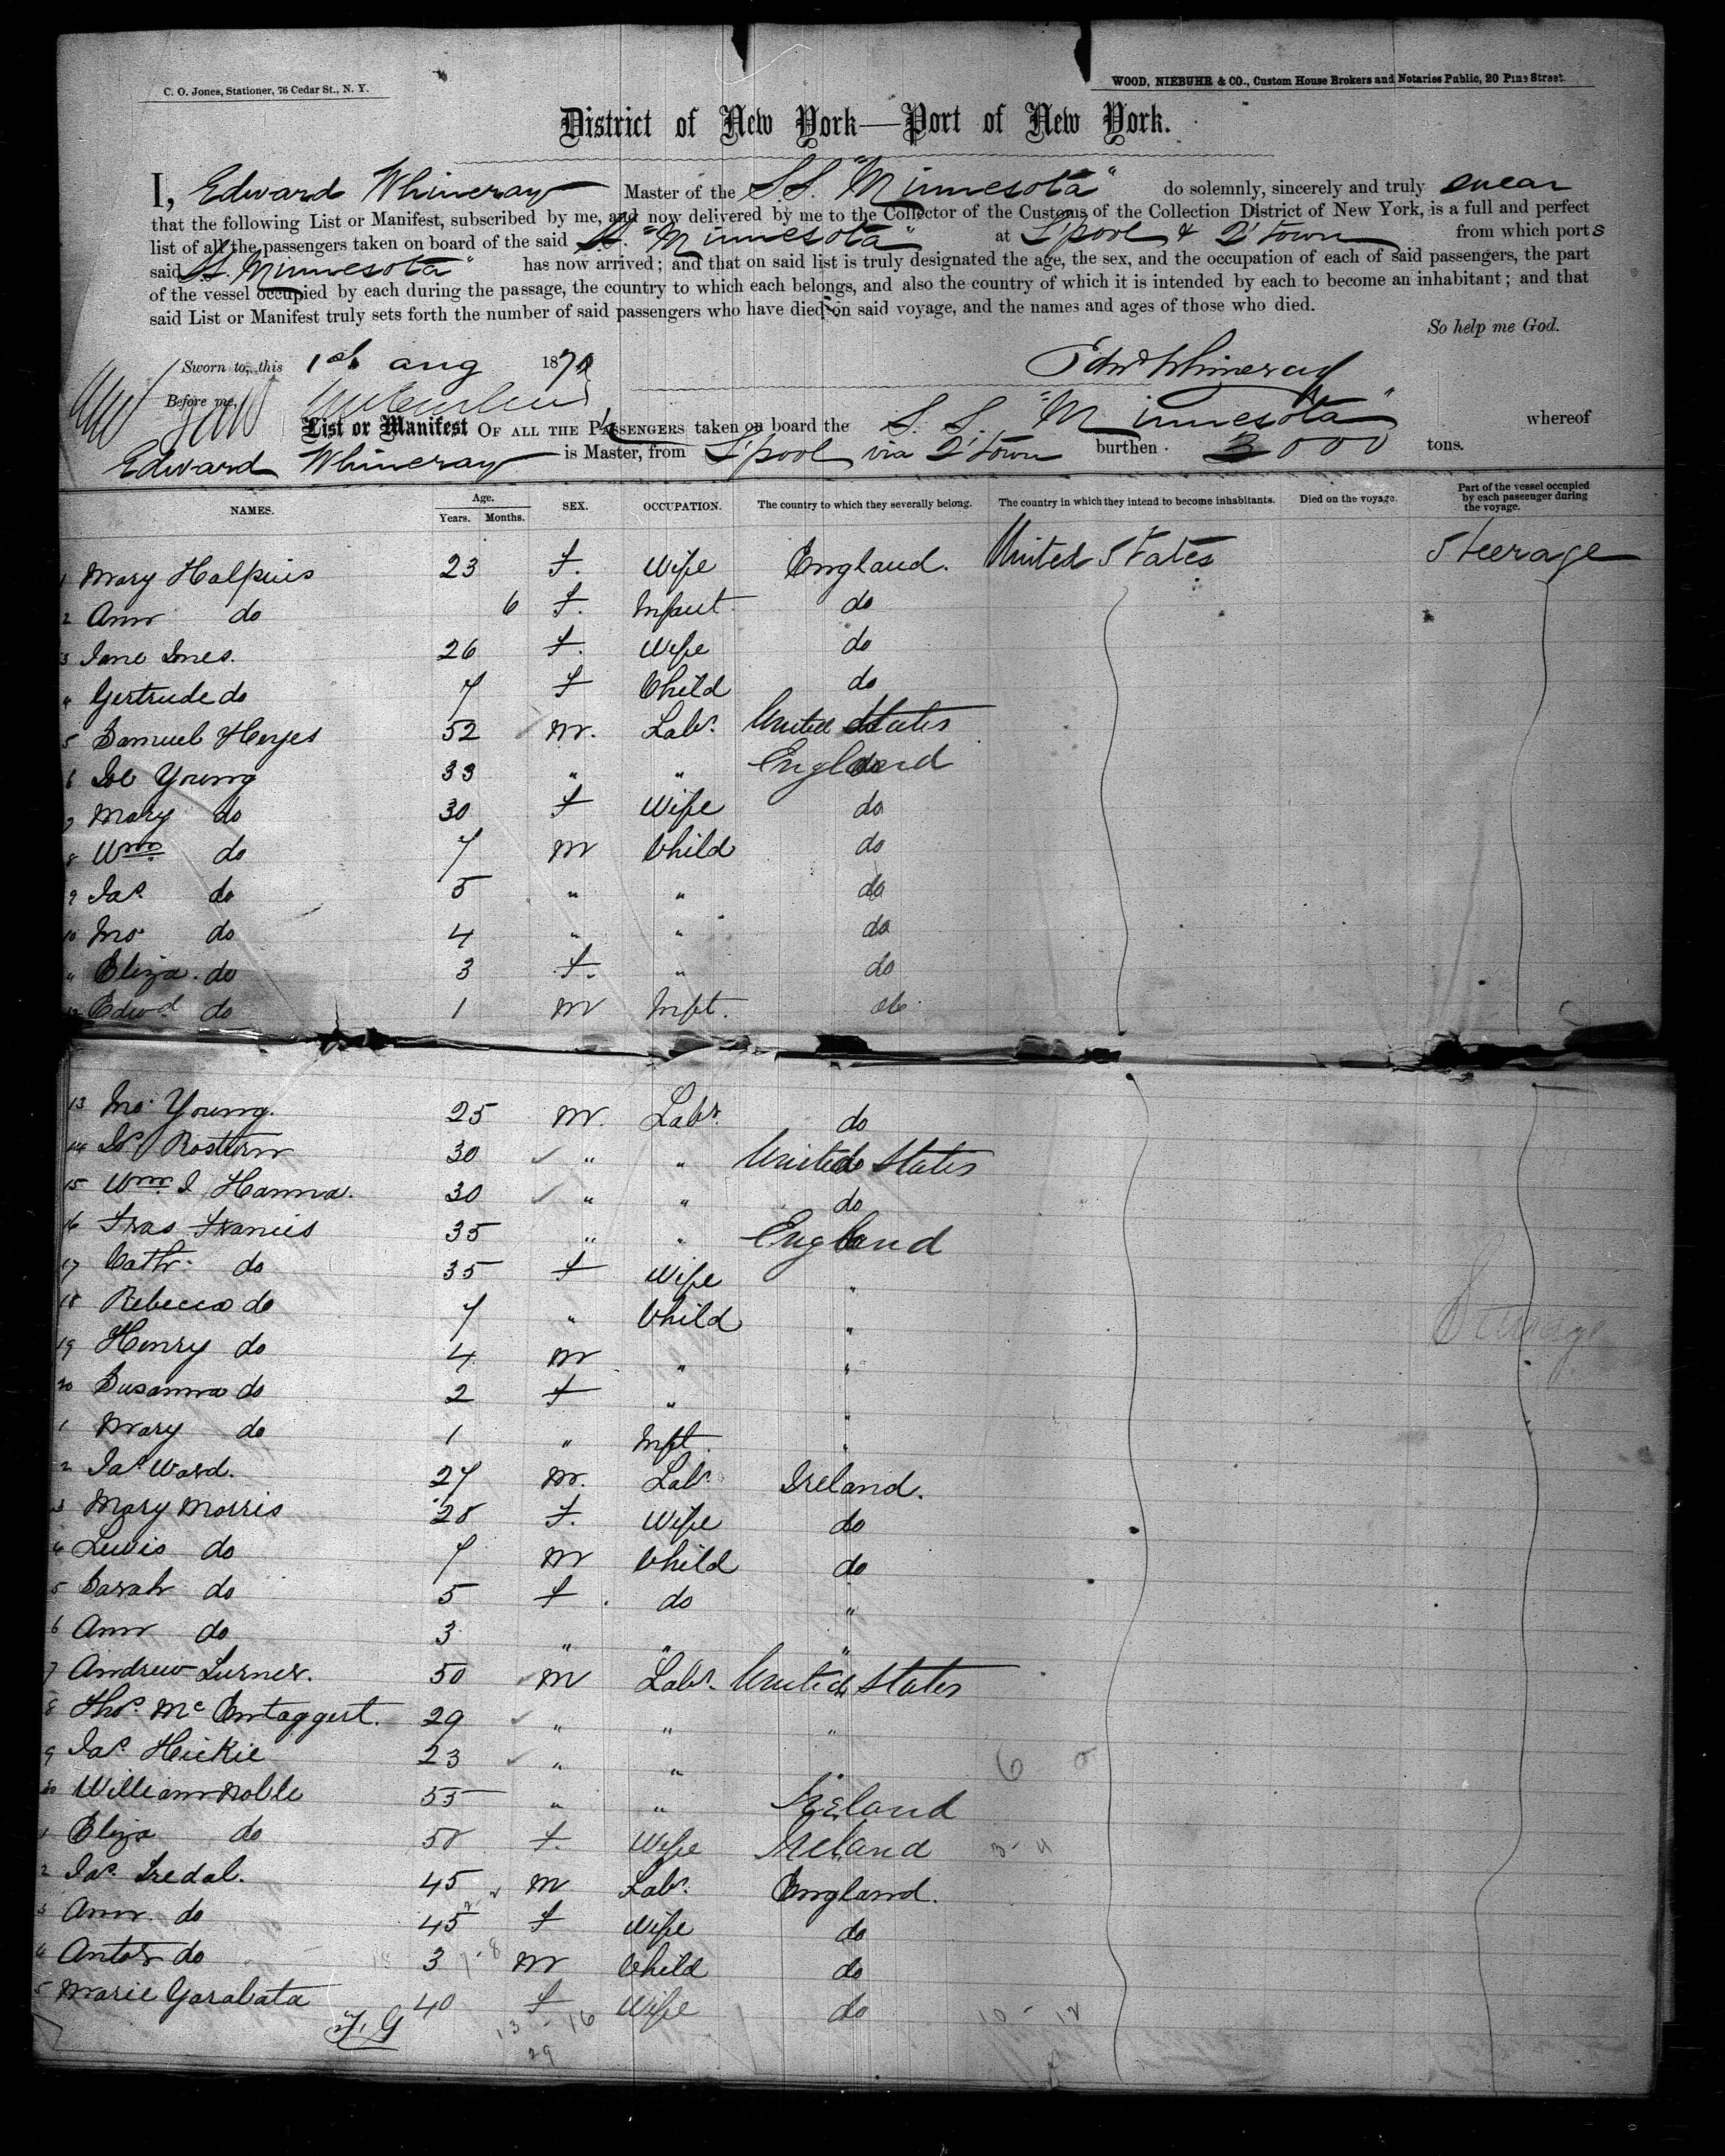 C. O. Jones, Stationer, 76 Cedar St., N. Y.
WOOD, NIEBUHR & CO., Custom House Brokers and Notaries Public, 20 Pine Street.
District of New York—Port of New York.
I, Edward Whineray Master of the S.S. "Minnesota" do solemnly, sincerely and truly swear
that the following List or Manifest, subscribed by me, and now delivered by me to the Collector of the Customs of the Collection District of New York, is a full and perfect
list of all the passengers taken on board of the said SS. "Minnesota" at L'pool & Q'town from which ports
said SS. Minnesota" has now arrived; and that on said list is truly designated the age, the sex, and the occupation of each of said passengers, the part
of the vessel occupied by each during the passage, the country to which each belongs, and also the country of which it is intended by each to become an inhabitant; and that
said List or Manifest truly sets forth the number of said passengers who have died on said voyage, and the names and ages of those who died.
So help me God.
Sworn to, this 1st Aug 187 Edwd Whineray
Before me,
List or Manifest OF ALL THE PASSENGERS taken on board the S. S. "Minnesota" whereof
Edward Whineray is Master, from L'pool via Q'town burthen 3000 tons.
NAMES. Age. Years. Months. SEX. OCCUPATION. The country to which they severally belong. The country in which they intend to become inhabitants. Died on the voyage. Part of the vessel occupied by each passenger during the voyage.
1 Mary Halpins 23 F. Wife England. United States Steerage
2 Ann do 6 F. Infant do
3 Jane Jones. 26 F. Wife do
4 Gertrude do 7 F Child do
5 Samuel Heyes 52 M. Labr. United States
6 Young 33 " " England
7 Mary do 30 F Wife do
8 Wm do 7 M Child do
9 Jas do 5 " " do
10 Jno do 4 " " do
" Eliza do 3 F. " do
12 Edwd do 1 M Inft. do
13 Jno Young. 25 M. Labr. do
14 Rostern 30 " " United States
15 Wm J Hanna. 30 " " do
16 Fras Francis 35 " " England
17 Cath. do 35 F Wife "
18 Rebecca do 7 " Child "
19 Henry do 4 M " "
20 Susanna do 2 F " "
1 Mary do 1 " Inft. "
2 Jas Ward. 27 M. Labr. Ireland.
3 Mary Morris 28 F. Wife do
4 Lewis do 7 M Child do
5 Sarah do 5 F. do "
6 Ann do 3 " " "
7 Andrew Turner. 50 M Labr. United States
8 Thos. Mc Entaggert. 29 " " "
9 Jas. Hickie 23 " " "
30 William Noble 55 " " Ireland
1 Eliza do 58 F. Wife Ireland
2 Jas. Iredal. 45 M Labr. England.
3 Ann. do 45 F Wife do
4 do 3 M Child do
5 Marie Garabata 40 F Wife do
13 - 16
29
10 - 12